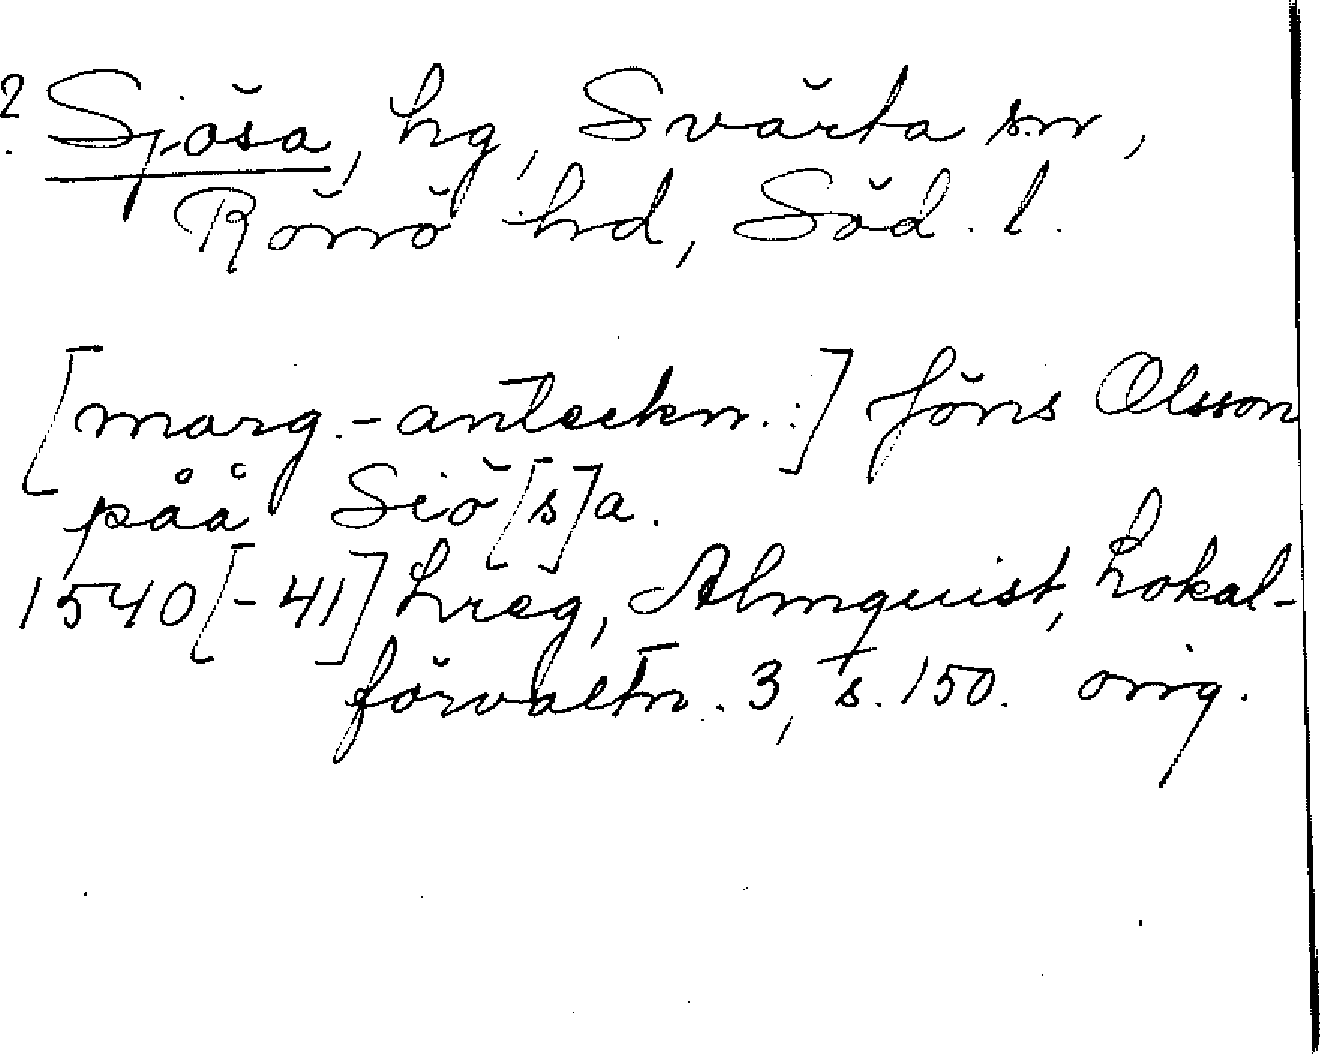 ? Sjösa, hg, Svärta sn,
Rönö hd, Söd. l.
[marg.-anteckn.:] Jöns Olsson
påå Siö[s]a.
1540[-41] Lreg, Almquist, Lokal-
förvaltn. 3, s. 150. orig.